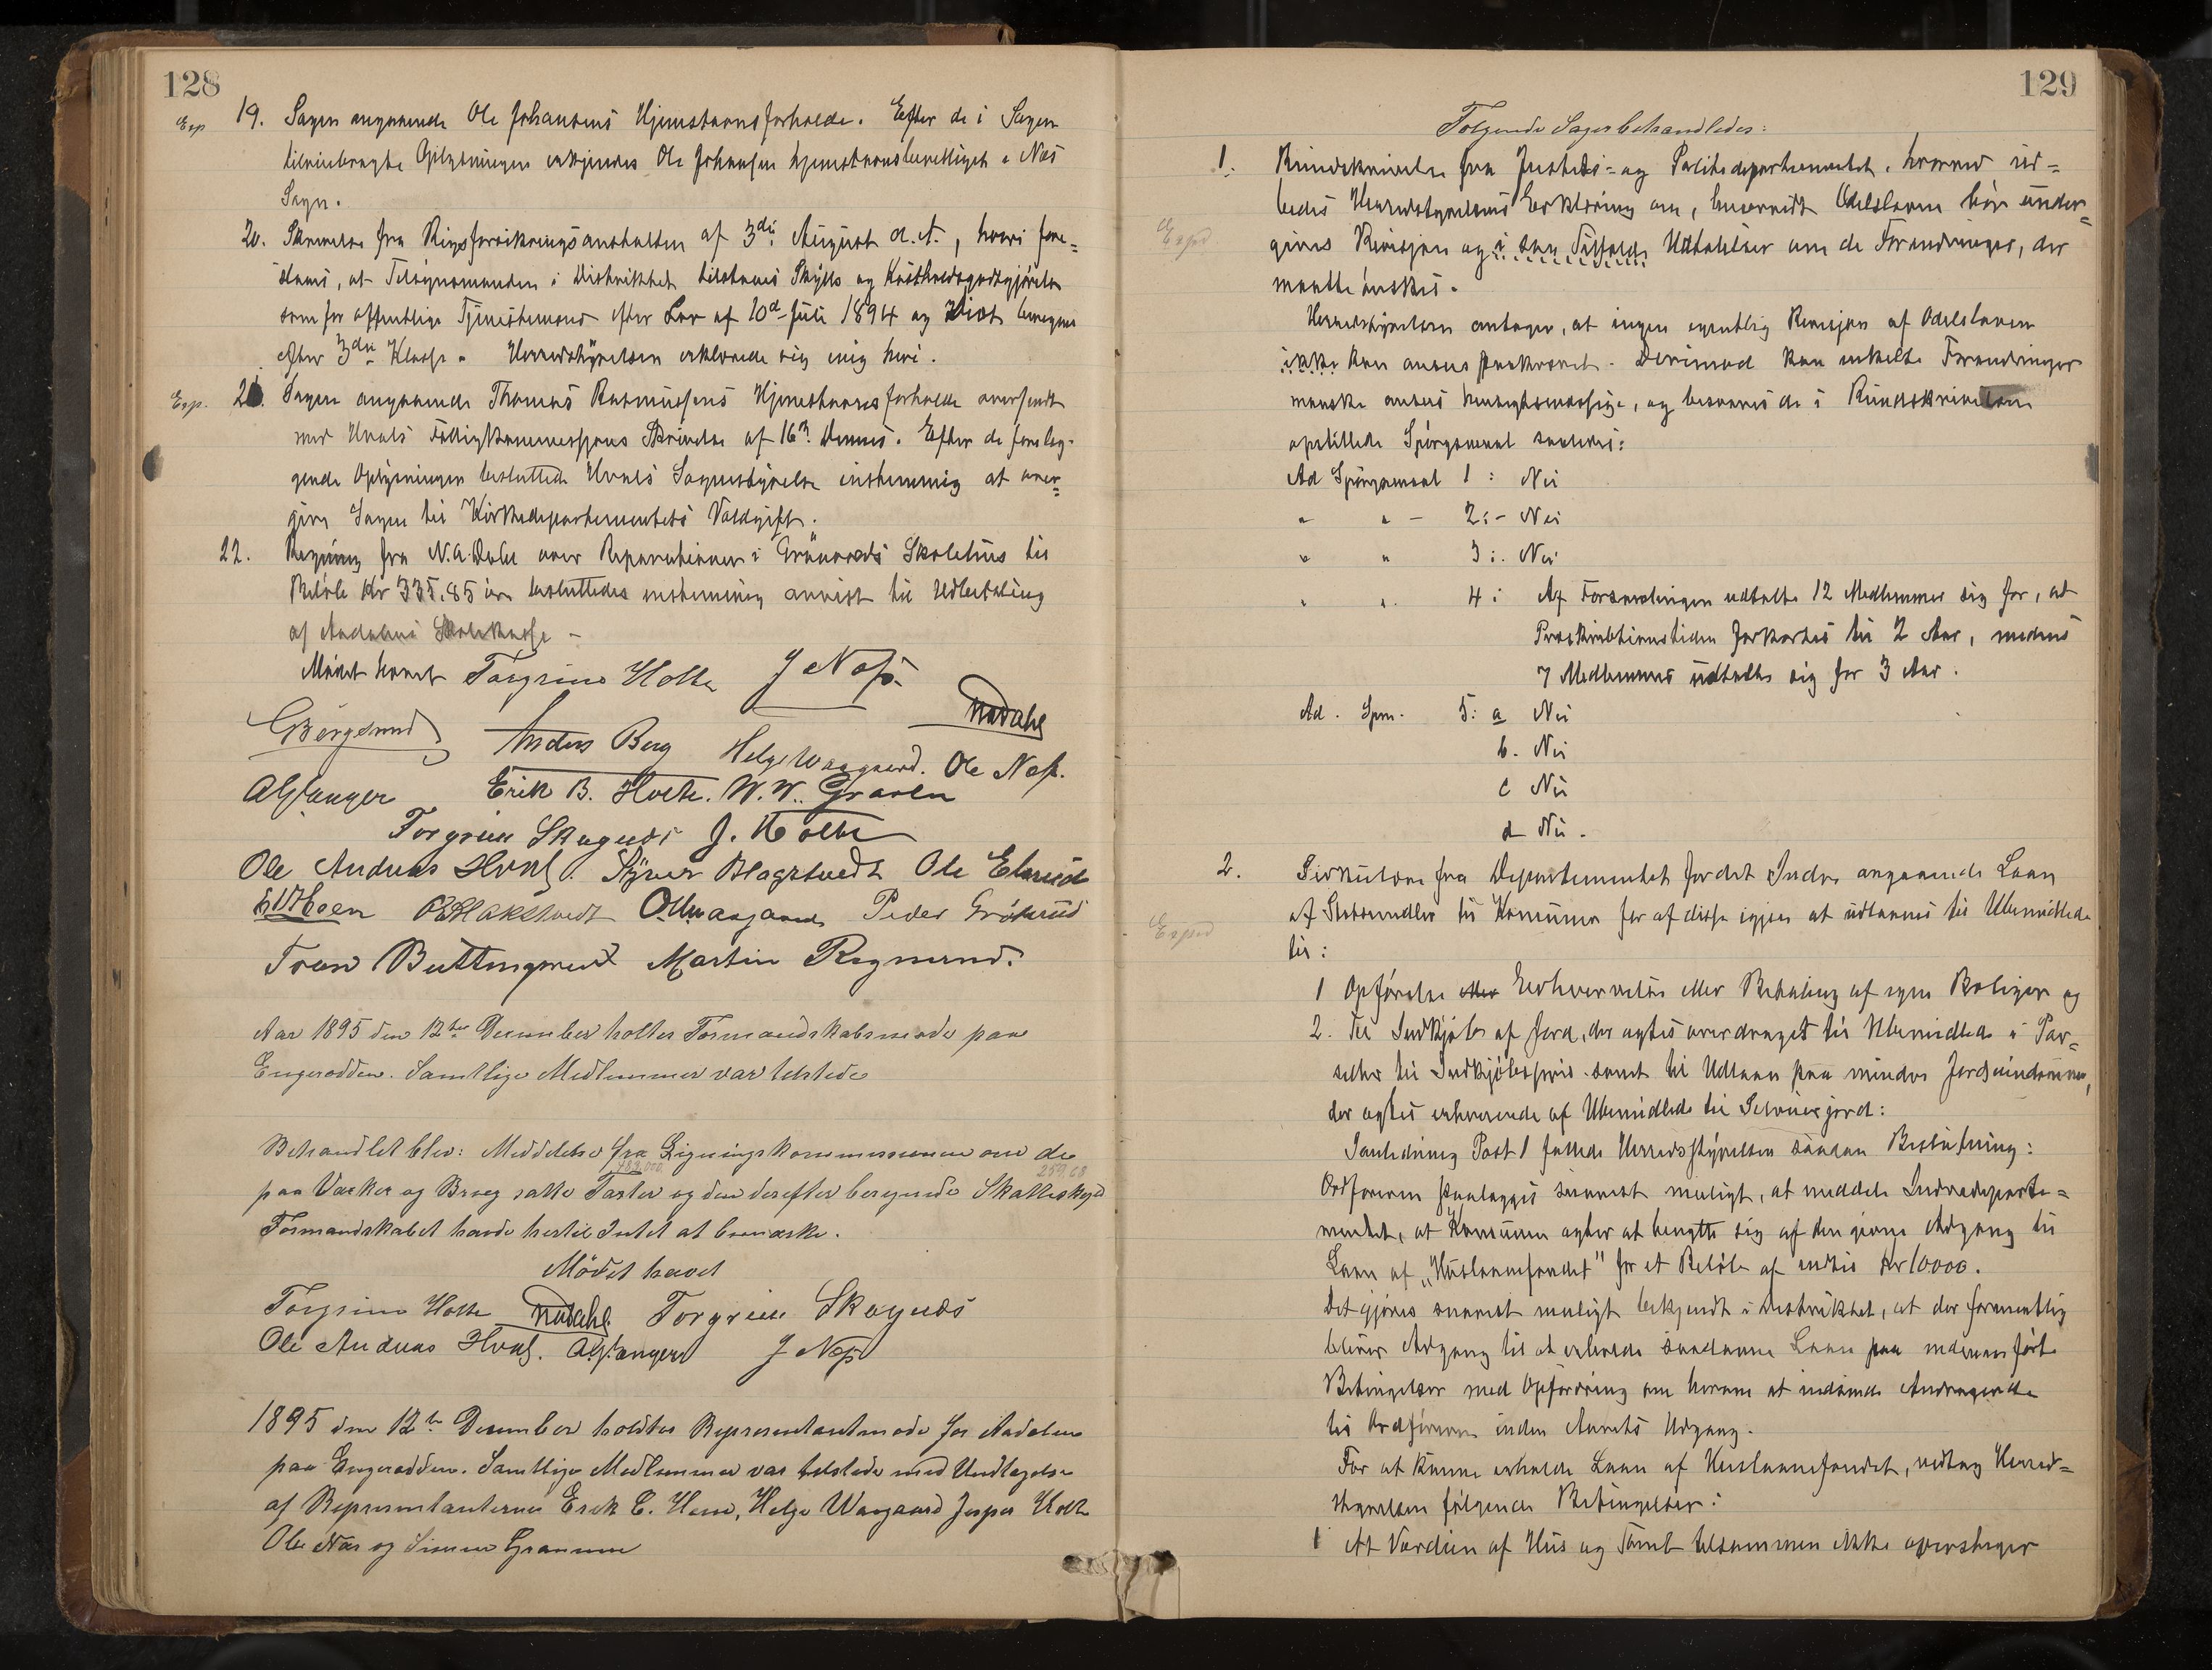 128
Exp 19. Sagen angaaende Ole Johansens Hjemstavnsforholde. Efter de i Sagen
tilveiebragte Oplysninger erkjendes Ole Johansen hjemstavnsberettiget i Næs
Sogn.
20. Skrivelse fra Rigsforsikringsanstalten af 3die August d.A., hvori fore-
slaaes, at Tilsynsmanden i Distriktet tilstaaes Skyds og Kostholdsgodtgjørelse
som for offentlige Tjenestemænd efter Lov af 10de Juli 1894 og Diæt beregnes
efter 3die Klasse. Herredsstyrelsen erklærede sig enig heri.
Exp. 21. Sagen angaaende Thomas Rasmussens Hjemstavnsforholde oversendt
med Hvals Fattigkommissions Skrivelse af 16de Dennes. Efter de forelig-
gende Oplysninger besluttede Hvals Sognestyrelse enstemmig at over-
give Sagen til Kirkedepartementets Voldgift.
22. Regning fra N.A. Dahl over Reparationer i Grønvolds Skolehus til
Beløb Kr 335.85 øre besluttedes enstemmig anvist til Udbetaling
af Aadalens Skolekasse -
Mødet hævet Torgrim Holte J Næss.
G Bergsund Anders Berg Helge Waagaard. Ole Næss. NADahl
AG Hanger Erik B. Holte. W.W. Graven
Torgrim Skagnæs J. Holte
Ole Andreas Hval. Syver Blagstvedt Ole Elsrud
E O Moen P E Blakstvedt O Waagaard Peder Grøterud
Tron Buttingsrud Martin Ringerud.
Aar 1895 den 12te December holtes Formandskabsmøde paa
Engerodden. Samtlige Medlemmer var tilstede
Behandlet blev: Meddelelse fra Ligningskommissionen om de
489,000 259,68
paa Værker og Brug satte Taxter og den derefter beregnede Skatteskyld
Formandskabet havde hertil Intet at bemærke.
Mödet hævet
Torgrim Holte NADahl Torgrim Skagnæs
Ole Andreas Hval. AG Hanger J Næss
1895 den 12te December holdtes Representantmøde for Aadalen
paa Engerodden. Samtlige Medlemmer var tilstede med Undtagelse
af Representanterne Erik C. Hem, Helge Waagaard Jesper Holte
Ole Næs og Simen Granum
129
Følgende Sager behandledes:
1. Rundskrivelse fra Justits- og Politidepartementet, hvorved ud-
bedes Herredsstyrelsens Erklæring om, hvorvidt Odelsloven bør under-
Exped gives Revisjon og i saa Tilfælde Udtalelser om de Forandringer, der
maatte ønskes.
Herredsstyrelsen antager, at ingen egentlig Revisjon af Odelsloven
ikke kan ansees paakrævet. Derimod kan enkelte Forandringer
maaske ansees hensigtsmæssige, og besvares de i Rundskrivelsen
opstillede Spørgsmaal saaledes:
Ad Spørgsmaal 1: Nei
" " - 2:- Nei
" " 3:. Nei
" " 4: Af Forsamlingen udtalte 12 Medlemmer sig for, at
Præskriptionstiden forkortes til 2 Aar, medens
7 Medlemmer udtalte sig for 3 Aar.
Ad. Spm. 5: a Nei
b. Nei
c Nei
d Nei.
2. Cirkulære fra Departementet for det Indre angaaende Laan
af Statsmidler til Kommuner for af disse igjen at udlaanes til Ubemidlede
Exped til:
1 Opførelse eller Erhvervelse eller Betaling af egne Boliger og
2. Til Indkjøb af Jord, der agtes overdraget til Ubemidlede i Par-
seller til Indkjøbspris samt til Udlaan paa mindre Jordeiendomme,
der agtes erhvervede af Ubemidlede til Selveierjord:
I anledning Post 1 fattede Herredsstyrelsen saadan Beslutning:
Ordføreren paalægges snarest muligt, at meddele Indredeparte-
mentet, at Kommunen agter at benytte sig af den givne Adgang til
Laan af „Huslaanefondet" for et Beløb af indtil Kr 10000.
Det gjøres snarest muligt bekjendt i Distriktet, at der formentlig
bliver Adgang til at erholde saadanne Laan paa nedenanførte
Betingelser med Opfordring om herom at indsende Andragende
til Ordføreren inden Aarets Udgang.
For at kunne erholde Laan af Huslaanefondet, vedtog Herred-
styrelsen følgende Betingelser:
1 At Værdien af Hus og Tomt tilsammen ikke overstiger